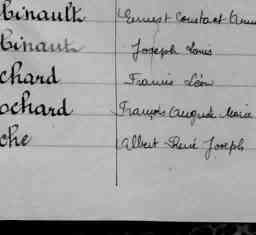 binault Ernest Constant
binault Joseph Louis
chard Francis Léon
ochard François Auguste Marie
che Albert René Joseph